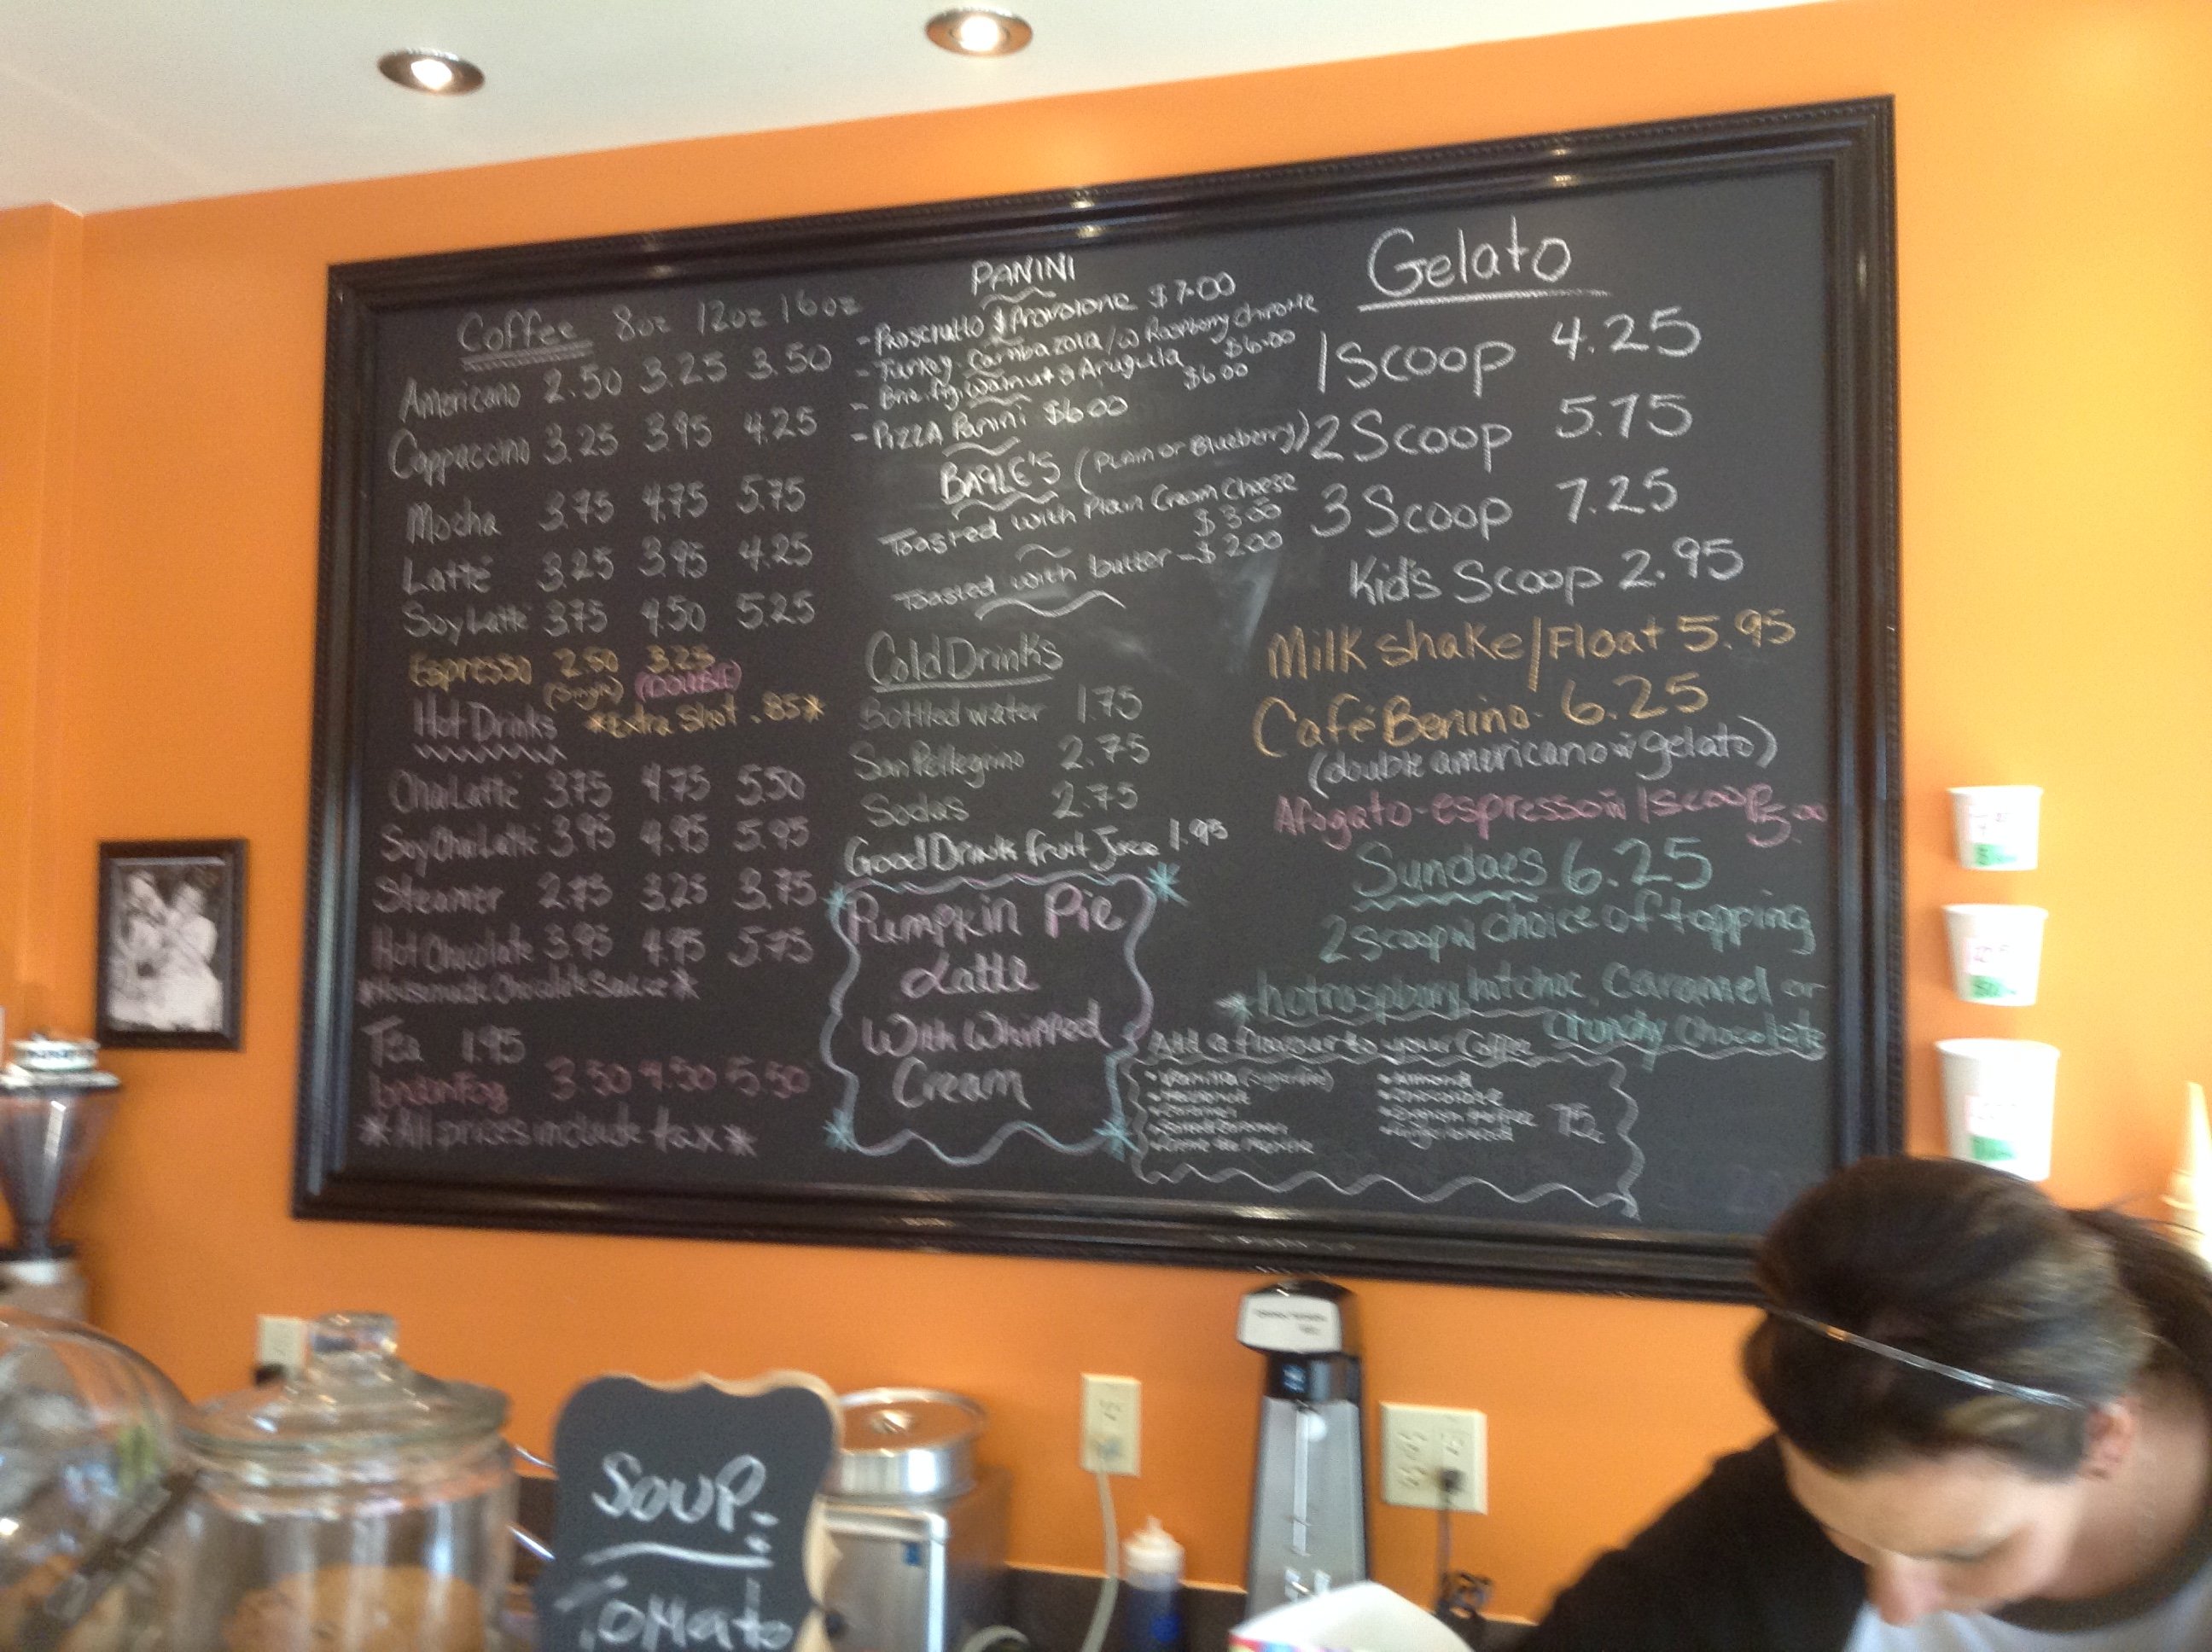 Coffee 8oz 12oz 16oz
Americano 2.50 3.25 3.50
Cappaccino 3.25 3.95 4.25
Mocha 3.75 4.75 5.75
Latté 3.25 3.95 4.25
Soy Latté 3.75 4.50 5.25
Espresso 2.50 3.25
(Single) (DOUBLE)
*Extra Shot .85*
Hot Drinks
Chai Latté 3.75 4.75 5.50
Soy Chai Latté 3.95 4.95 5.95
Steamer 2.75 3.25 3.75
Hot Chocolate 3.95 4.95 5.75
*Housemade Chocolate Sauce*
Tea 1.95
London Fog 3.50 4.50 5.50
*All prices include tax*
PANINI
- Prosciutto & Provolone $7.00
- Turkey, Cambazola /w Raspberry
$6.00
- Brie, fig, walnut & Arugula $6.00
- PIZZA Panini $6.00
BAGLE'S (Plain or Blueberry)
Toasted with Plain Cream Cheese
$3.00
Toasted with butter - $2.00
Cold Drinks
Bottled water 1.75
San Pellegrino 2.75
Sodas 2.75
Good Drink fruit Juce 1.95
Pumpkin Pie
Latte
With Whipped
Cream
Gelato
1 Scoop 4.25
2 Scoop 5.75
3 Scoop 7.25
Kid's Scoop 2.95
Milk shake/Float 5.95
Café Benino 6.25
(double americano w gelato)
Afogato - espresso w 1 scoop 5.00
Sundaes 6.25
2 scoop w choice of topping
*hot raspbury, hot choc, Caramel or
Crunchy Chocolate
Add a flavour to your Coffee
• Vanilla (sugar free)
• Hazelnut
• Caramel
• Salted Caramel
• Creme de Menthe
• Almond
• Chocolate
• English toffee
75c
SOUP:
Tomato